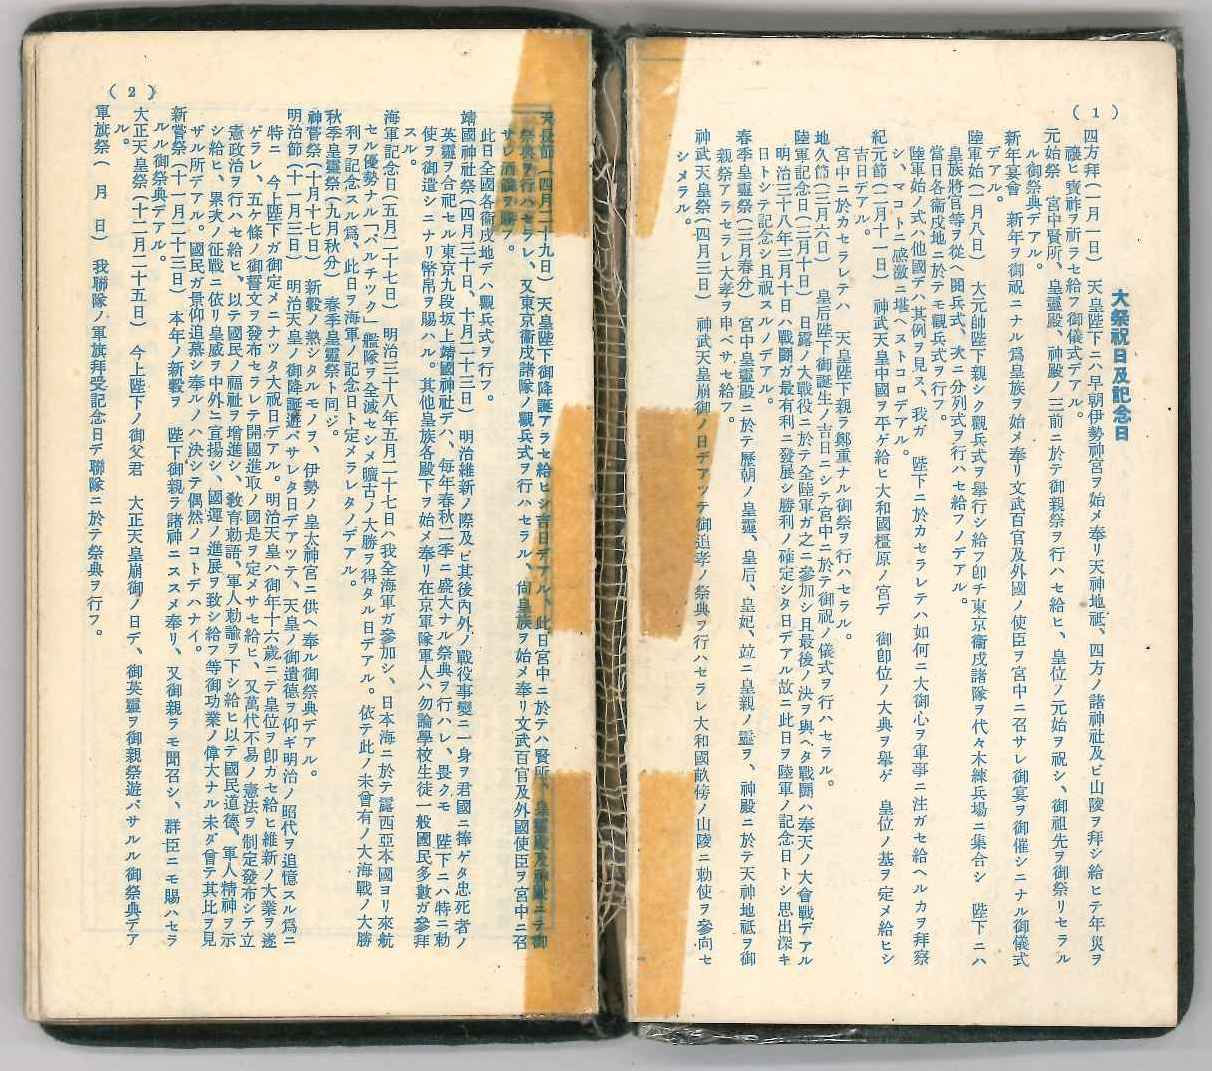 (1)
大祭祝日及記念日
四方拜(一月一日) 天皇陛下ニハ早朝伊勢神宮ヲ始メ奉リ天神地祇、四方ノ諸神社及ビ山陵ヲ拜シ給ヒテ年災ヲ
禳ヒ寶祚ヲ祈ラセ給フ御儀式デアル。
元始祭 宮中賢所、皇靈殿、神殿ノ三前ニ於テ御親祭ヲ行ハセ給ヒ、皇位ノ元始ヲ祝シ、御祖先ヲ御祭リセラル
ル御祭典デアル。
新年宴會 新年ヲ御祝ニナル爲皇族ヲ始メ奉リ文武百官及外國ノ使臣ヲ宮中ニ召サレ御宴ヲ御催シニナル御儀式
デアル。
陸軍始(一月八日) 大元帥陛下親シク觀兵式ヲ擧行シ給フ卽チ東京衞戍諸隊ヲ代々木練兵場ニ集合シ 陛下ニハ
皇族將官等ヲ從ヘ閲兵式、次ニ分列式ヲ行ハセ給フノデアル。
當日各衞戍地ニ於テモ觀兵式ヲ行フ。
陸軍始ノ式ハ他國デハ其例ヲ見ス、我ガ 陛下ニ於カセラレテハ如何ニ大御心ヲ軍事ニ注ガセ給ヘルカヲ拜察
シ、マコトニ感激ニ堪ヘストコロデアル。
紀元節(二月十一日) 神武天皇中國ヲ平ゲ給ヒ大和國橿原ノ宮デ 御卽位ノ大典ヲ擧ゲ 皇位ノ基ヲ定メ給ヒシ
吉日デアル。
宮中ニ於カセラレテハ 天皇陛下親ラ鄭重ナル御祭ヲ行ハセラル。
地久節(三月六日) 皇后陛下御誕生ノ吉日ニシテ宮中ニ於テ御祝ノ儀式ヲ行ハセラル。
陸軍記念日(三月十日) 日露ノ大戰役ニ於テ全陸軍ガ之ニ參加シ且最後ノ決ヲ與ヘタ戰鬪ハ奉天ノ大會戰デアル
明治三十八年三月十日ハ戰鬪ガ最有利ニ發展シ勝利ノ確定シタ日デアル故ニ此日ヲ陸軍ノ記念日トシ思出深キ
日トシテ記念シ且祝スルノデアル。
春季皇靈祭(三月春分) 宮中皇靈殿ニ於テ歷朝ノ皇靈、皇后、皇妃、竝ニ皇親ノ靈ヲ、神殿ニ於テ天神地祇ヲ御
親祭アラセラレ大孝ヲ申ベサセ給フ。
神武天皇祭(四月三日) 神武天皇崩御ノ日デアツテ御追孝ノ祭典ヲ行ハセラレ大和國畝傍ノ山陵ニ勅使ヲ參向セ
シメラル。
(2)
天長節(四月二十九日) 天皇陛下御降誕アラセ給ヒシ吉日デアル、此日宮中ニ於テハ賢所、皇靈殿及神殿ニテ御
祭典ヲ行ハセラレ、又東京衞戍諸隊ノ觀兵式ヲ行ハセラル、尙皇族ヲ始メ奉リ文武百官及外國使臣ヲ宮中ニ召
サレ酒饌ヲ賜フ。
此日全國各衞戍地デハ觀兵式ヲ行フ。
靖國神社祭(四月三十日、十月二十三日) 明治維新ノ際及ビ其後内外ノ戰役事變ニ一身ヲ君國ニ捧ゲタ忠死者ノ
英靈ヲ合祀セル東京九段坂上靖國神社デハ、每年春秋二季ニ盛大ナル祭典ヲ行ハレ、畏クモ 陛下ニハ特ニ勅
使ヲ御遣シニナリ幣帛ヲ賜ハル。其他皇族各殿下ヲ始メ奉リ在京軍隊軍人ハ勿論學校生徒一般國民多數ガ參拜
スル。
海軍記念日(五月二十七日) 明治三十八年五月二十七日ハ我全海軍ガ參加シ、日本海ニ於テ露西亞本國ヨリ來航
セル優勢ナル「バルチツク」艦隊ヲ全滅セシメ曠古ノ大勝ヲ得タル日デアル。依テ此ノ未曾有ノ大海戰ノ大勝
利ヲ記念スル爲、此日ヲ海軍ノ記念日ト定メラレタノデアル。
秋季皇靈祭(九月秋分) 春季皇靈祭ト同ジ。
神嘗祭(十月十七日) 新穀ノ熟シタルモノヲ、伊勢ノ皇太神宮ニ供ヘ奉ル御祭典デアル。
明治節(十一月三日) 明治天皇ノ御降誕遊バサレタ日デアツテ、天皇ノ御遺德ヲ仰ギ明治ノ昭代ヲ追憶スル爲ニ
特ニ 今上陛下ガ御定メニナツタ大祝日デアル。明治天皇ハ御年十六歲ニテ皇位ヲ卽カセ給ヒ維新ノ大業ヲ遂
ゲラレ、五ケ條ノ御誓文ヲ發布セラレテ開國進取ノ國是ヲ定メサセ給ヒ、又萬代不易ノ憲法ヲ制定發布シテ立
憲政治ヲ行ハセ給ヒ、以テ國民ノ福祉ヲ增進シ、敎育勅語、軍人勅諭ヲ下シ給ヒ以テ國民道德、軍人精神ヲ示
シ給ヒ、累次ノ征戰ニ依リ皇威ヲ中外ニ宣揚シ、國運ノ進展ヲ致シ給フ等御功業ノ偉大ナル未ダ曾テ其比ヲ見
ザル所デアル。國民ガ景仰追慕シ奉ルノハ決シテ偶然ノコトデハナイ。
新嘗祭(十一月二十三日) 本年ノ新穀ヲ 陛下御親ラ諸神ニススメ奉リ、又御親ラモ聞召シ、群臣ニモ賜ハセラ
ルル御祭典デアル。
大正天皇祭(十二月二十五日) 今上陛下ノ御父君 大正天皇崩御ノ日デ、御英靈ヲ御親祭遊バサルル御祭典デア
ル。
軍旗祭( 月 日) 我聯隊ノ軍旗拜受記念日デ聯隊ニ於テ祭典ヲ行フ。